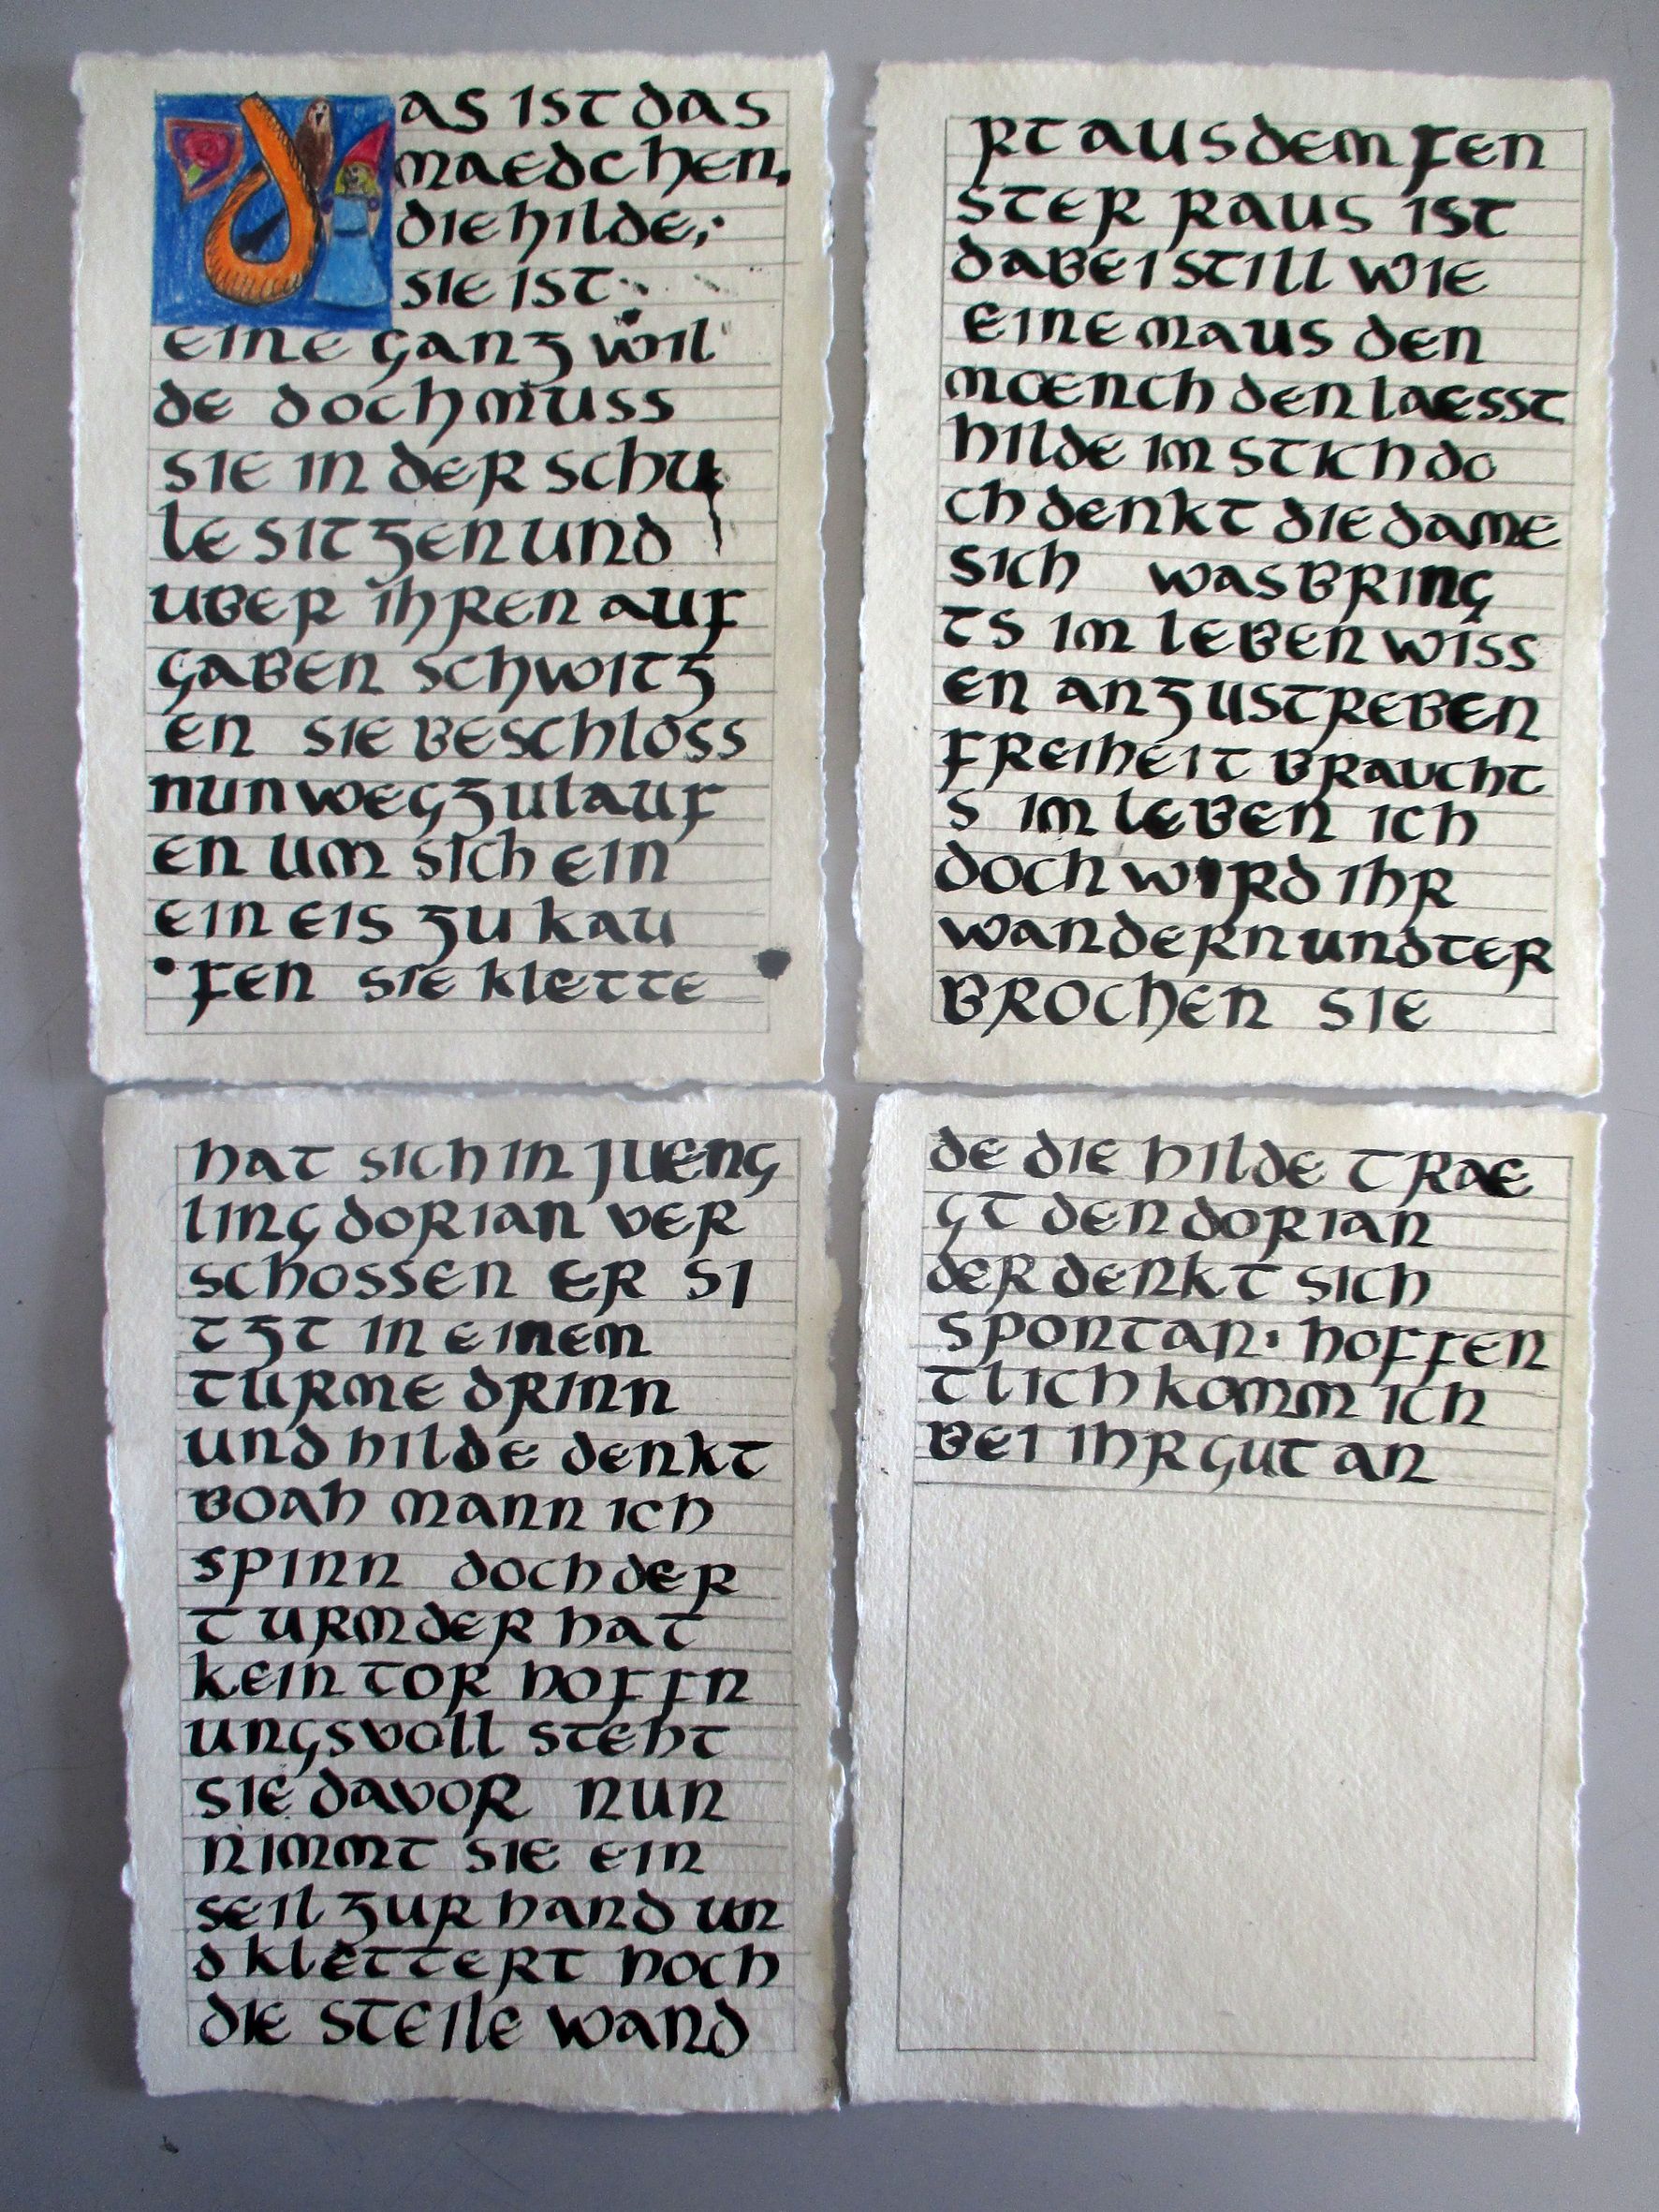 DAS IST DAS
MAEDCHEN,
DIE HILDE,
SIE IST
EINE GANZ WIL
DE DOCH MUSS
SIE IN DER SCHU
LE SITZEN UND
UBER IHREN AUF
GABEN SCHWITZ
EN SIE BESCHLOSS
NUN WEGZULAUF
EN UM SICH EIN
EIN EIS ZU KAU
FEN SIE KLETTE
RT AUS DEM FEN
STER RAUS IST
DABEI STILL WIE
EINE MAUS DEN
MOENCH DEN LAESST
HILDE IM STICH DO
CH DENKT DIE DAME
SICH WAS BRING
TS IM LEBEN WISS
EN ANZUSTREBEN
FREIHEIT BRAUCHT
S IM LEBEN ICH
DOCH WIRD IHR
WANDERN UNDTER
BROCHEN SIE
HAT SICH IN JUENG
LING DORIAN VER
SCHOSSEN ER SI
TZT IN EINEM
TURME DRINN
UND HILDE DENKT
BOAH MANN ICH
SPINN DOCH DER
TURM DER HAT
KEIN TOR HOFFN
UNGSVOLL STEHT
SIE DAVOR NUN
NIMMT SIE EIN
SEIL ZUR HAND UN
D KLETTERT HOCH
DIE STEILE WAND
DE DIE HILDE TRAE
GT DEN DORIAN
DER DENKT SICH
SPONTAN· HOFFEN
TLICH KOMM ICH
BEI IHR GUT AN